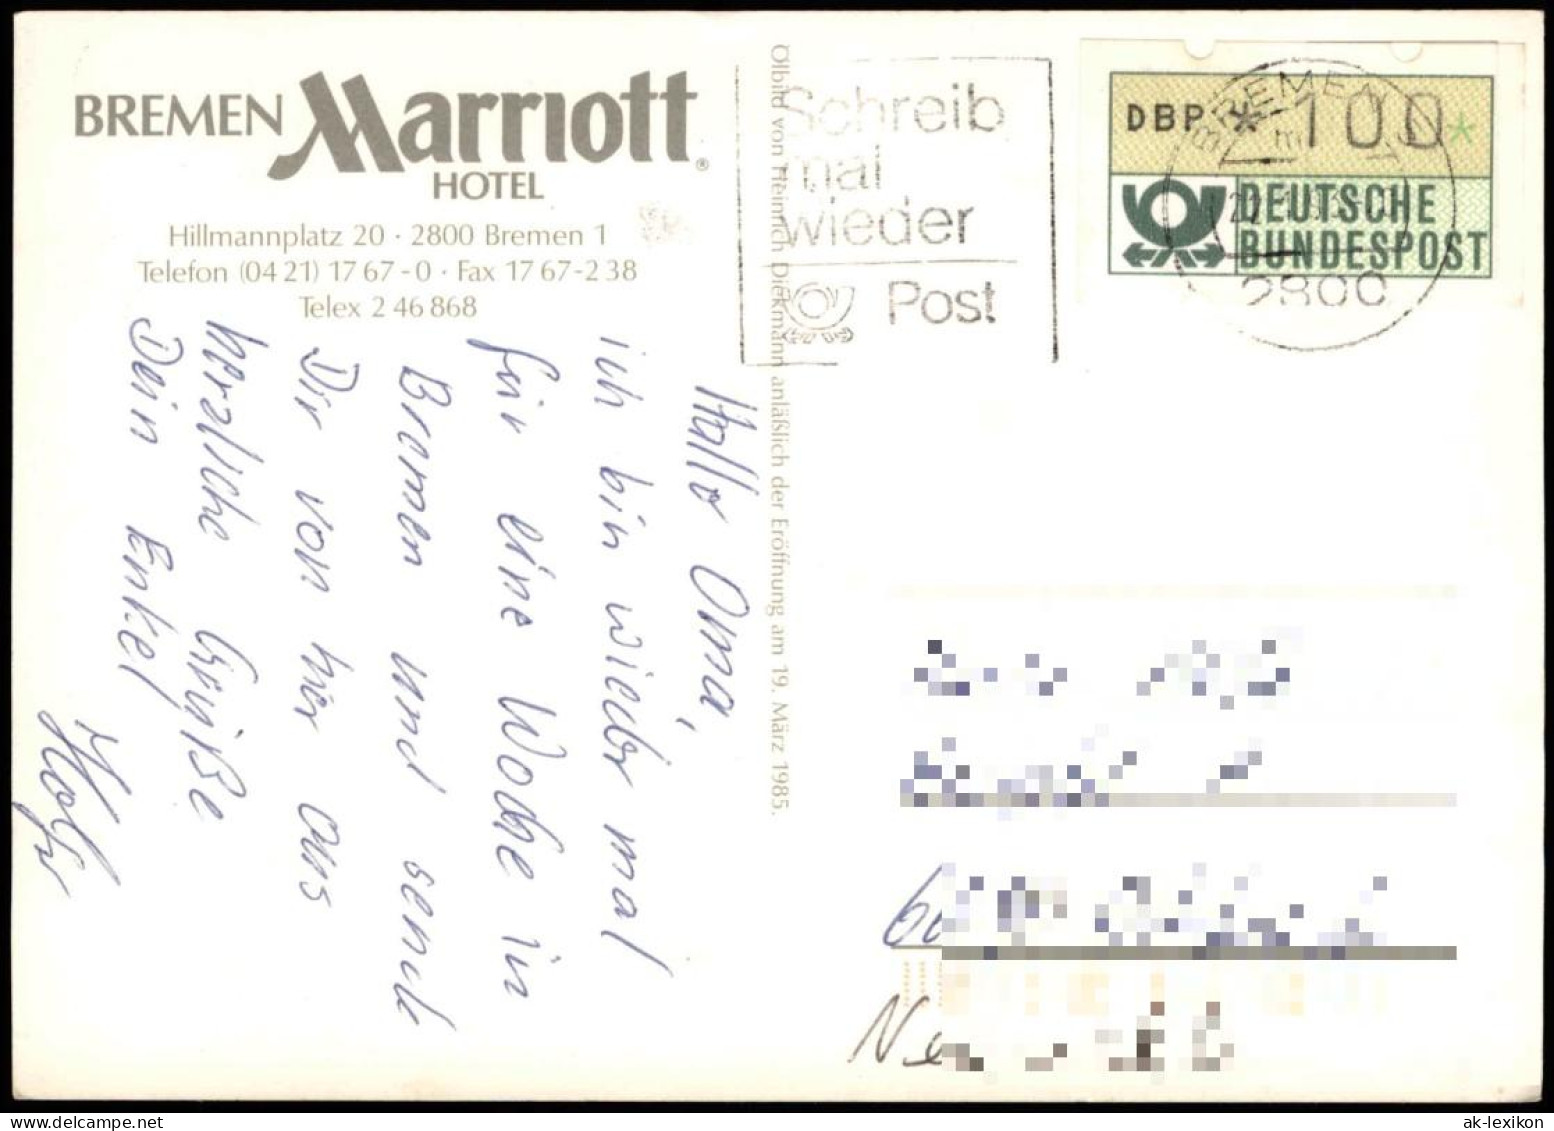 BREMEN Marriott®
HOTEL
Hillmannplatz 20 · 2800 Bremen 1
Telefon (04 21) 17 67-0 · Fax 17 67-2 38
Telex 2 46 868
Hallo Oma,
ich bin wieder mal
für eine Woche in
Bremen und sende
Dir von hier aus
herzliche Grüße
Dein Enkel
Ölbild von Heinrich Diekmann anläßlich der Eröffnung am 19. März 1985.
Schreib
mal
wieder
Post
DBP * 100 *
DEUTSCHE
BUNDESPOST
BREMEN
2800
ak-lexikon